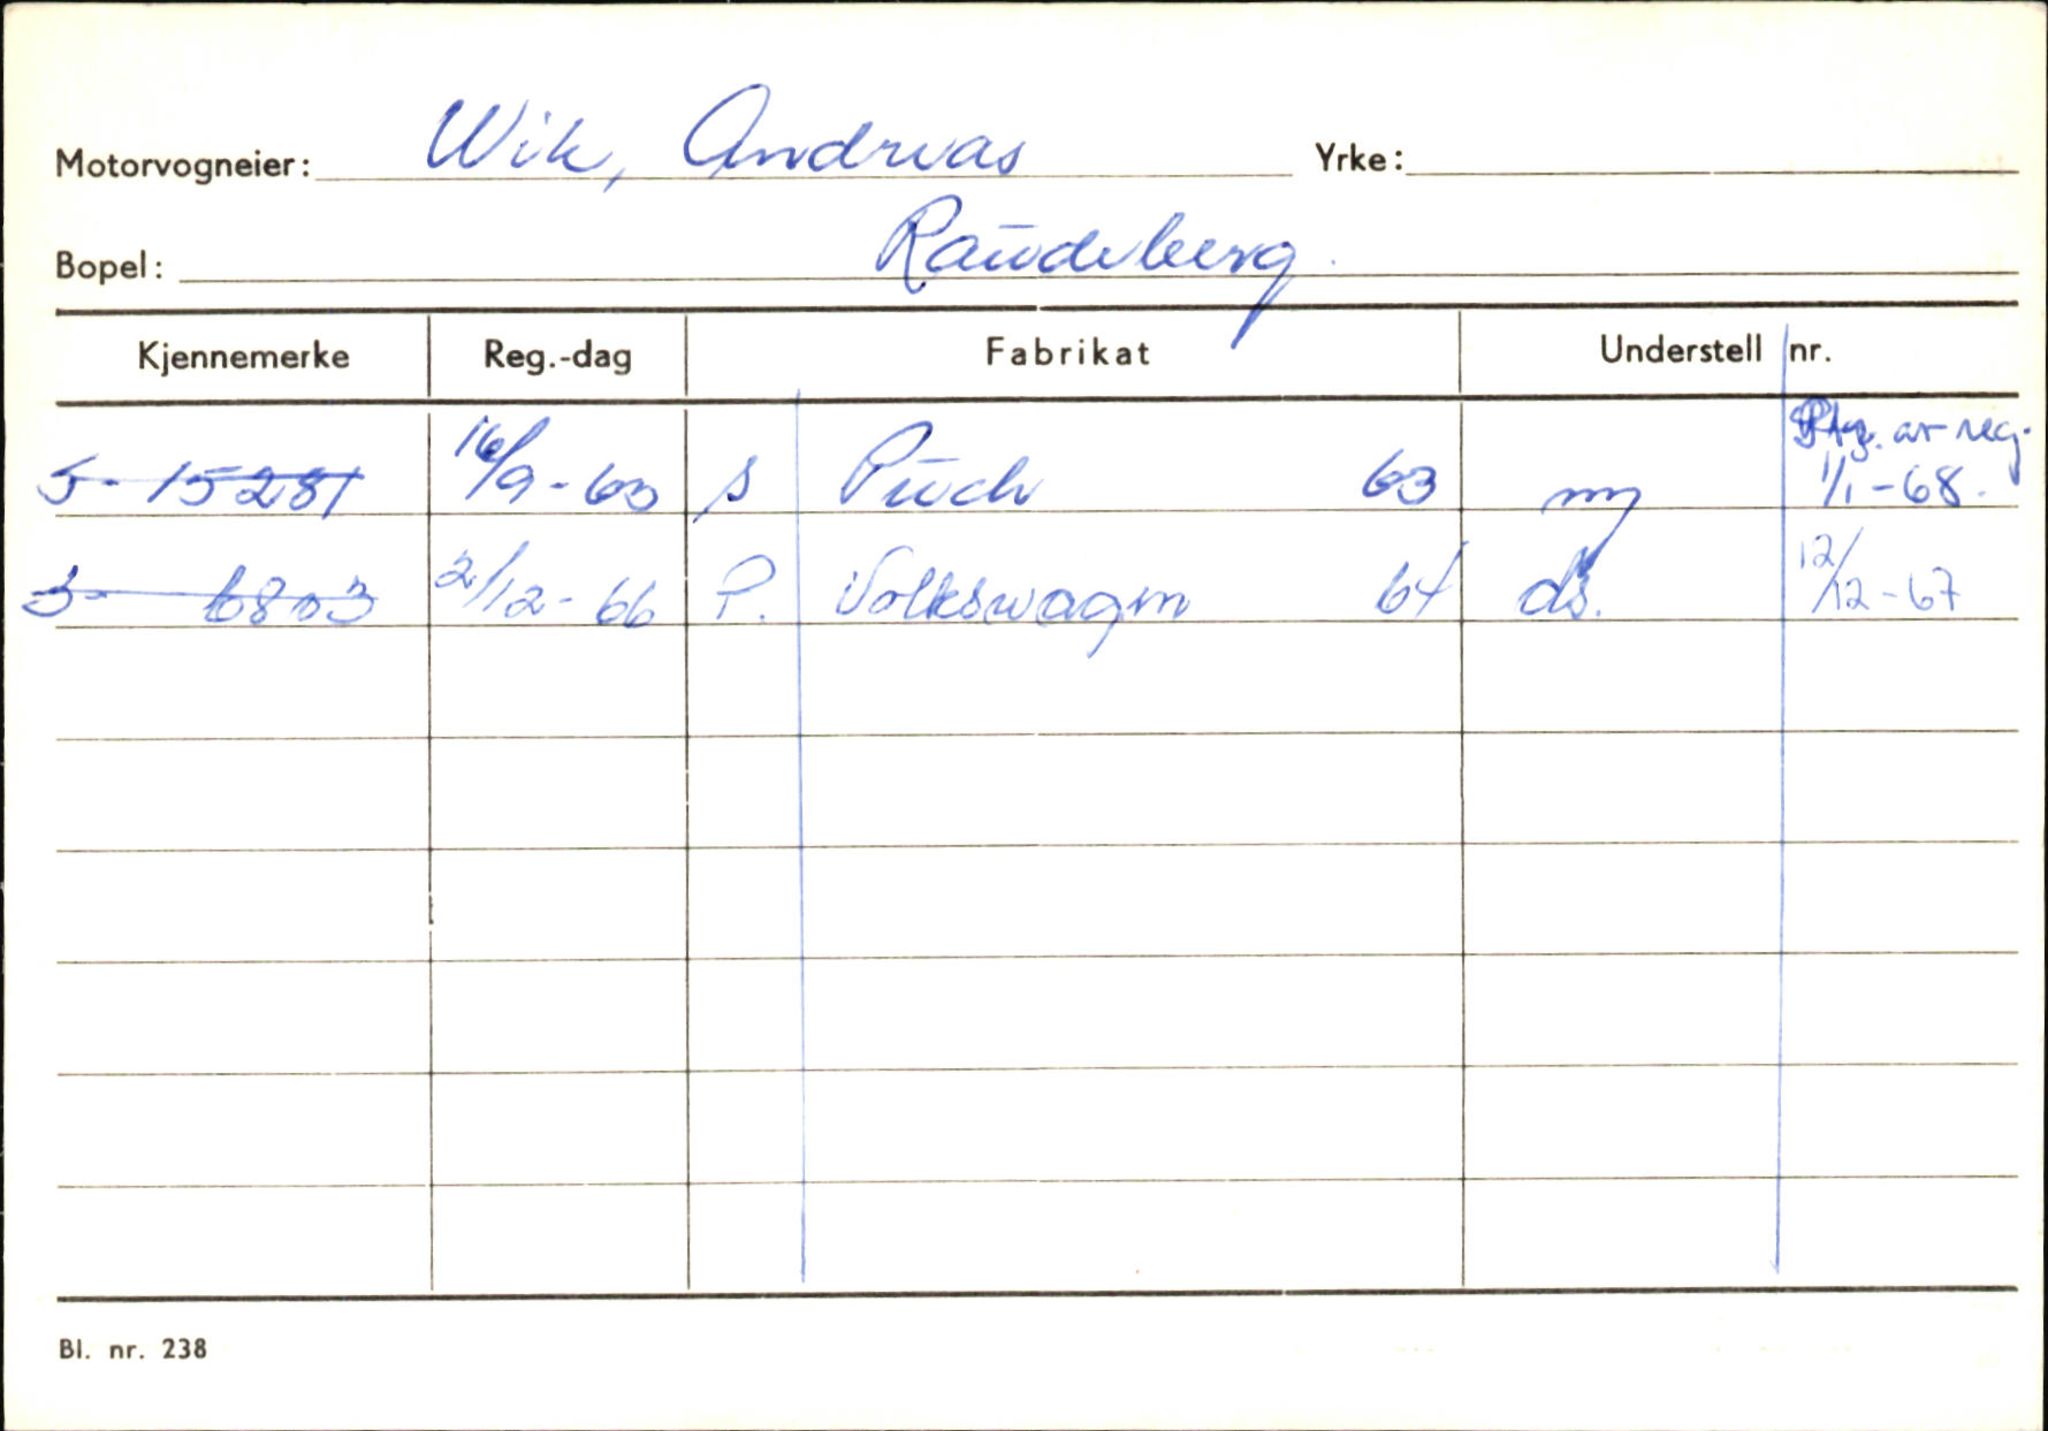 Motorvogneier: Wik, Andreas Yrke:
Bopel: Raudeberg.
Kjennemerke Reg.-dag Fabrikat Understell nr.
av reg.
S- 15281 16/9-63 s Puch 63 ny 1/1-68.
S- 6803 2/12-66 P. Volkswagen 64 ds. 12/12-67
Bl. nr. 238